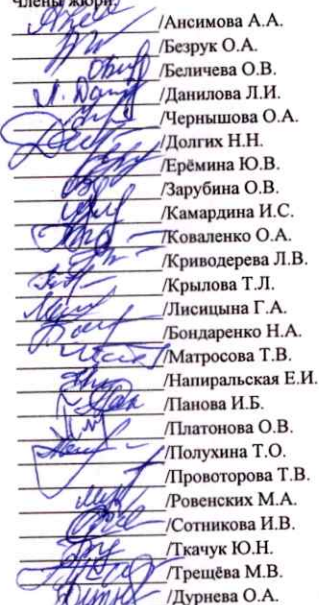 Члены жюри:
/Ансимова А.А.
/Безрук О.А.
/Беличева О.В.
/Данилова Л.И.
/Чернышова О.А.
/Долгих Н.Н.
/Ерёмина Ю.В.
/Зарубина О.В.
/Камардина И.С.
/Коваленко О.А.
/Криводерева Л.В.
/Крылова Т.Л.
/Лисицына Г.А.
/Бондаренко Н.А.
/Матросова Т.В.
/Напиральская Е.И.
/Панова И.Б.
/Платонова О.В.
/Полухина Т.О.
/Провоторова Т.В.
/Ровенских М.А.
/Сотникова И.В.
/Ткачук Ю.Н.
/Трещёва М.В.
/Дурнева О.А.